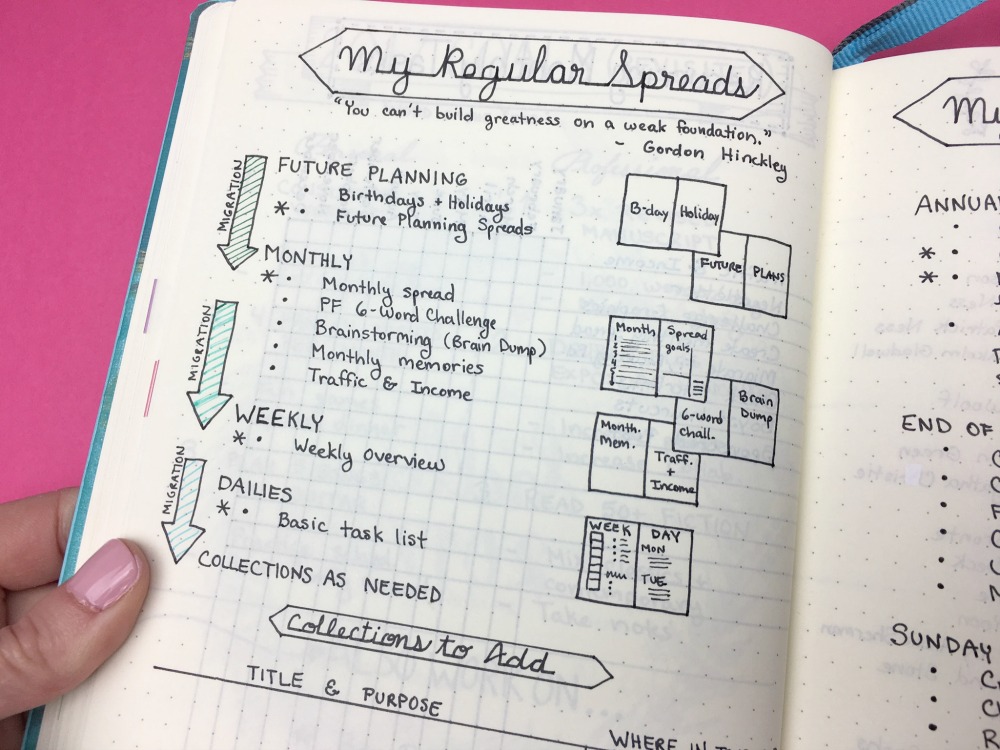 My Regular Spreads
"You can't build greatness on a weak foundation."
- Gordon Hinckley
MIGRATION
FUTURE PLANNING
• Birthdays + Holidays
* • Future Planning Spreads
MONTHLY
* • Monthly spread
• PF 6-Word Challenge
• Brainstorming (Brain Dump)
• Monthly memories
• Traffic & Income
MIGRATION
WEEKLY
* • Weekly overview
MIGRATION
DAILIES
* • Basic task list
COLLECTIONS AS NEEDED
B-day Holiday
FUTURE PLANS
Month Spread
goals
6-word
Chall.
Brain
Dump
Month.
Mem.
Traff.
+
Income
WEEK DAY
MON
TUE
Collections to Add
TITLE & PURPOSE
WHERE IN
My
*
*
END OF
SUNDAY